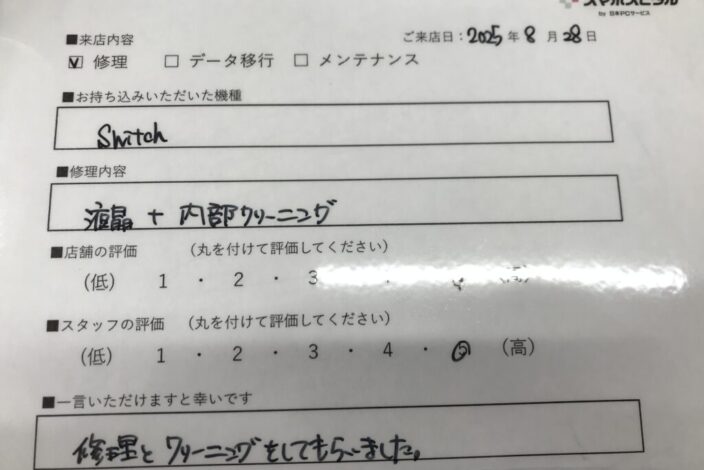 スマホスピタル
by 日本PCサービス
■来店内容 ご来店日：2025年8月28日
☑ 修理 □ データ移行 □ メンテナンス
■お持ち込みいただいた機種
Switch
■修理内容
液晶 + 内部クリーニング
■店舗の評価 （丸を付けて評価してください）
（低） 1 ・ 2 ・ 3
■スタッフの評価 （丸を付けて評価してください）
（低） 1 ・ 2 ・ 3 ・ 4 ・ 5 （高）
■一言いただけますと幸いです
修理とクリーニングをしてもらいました。